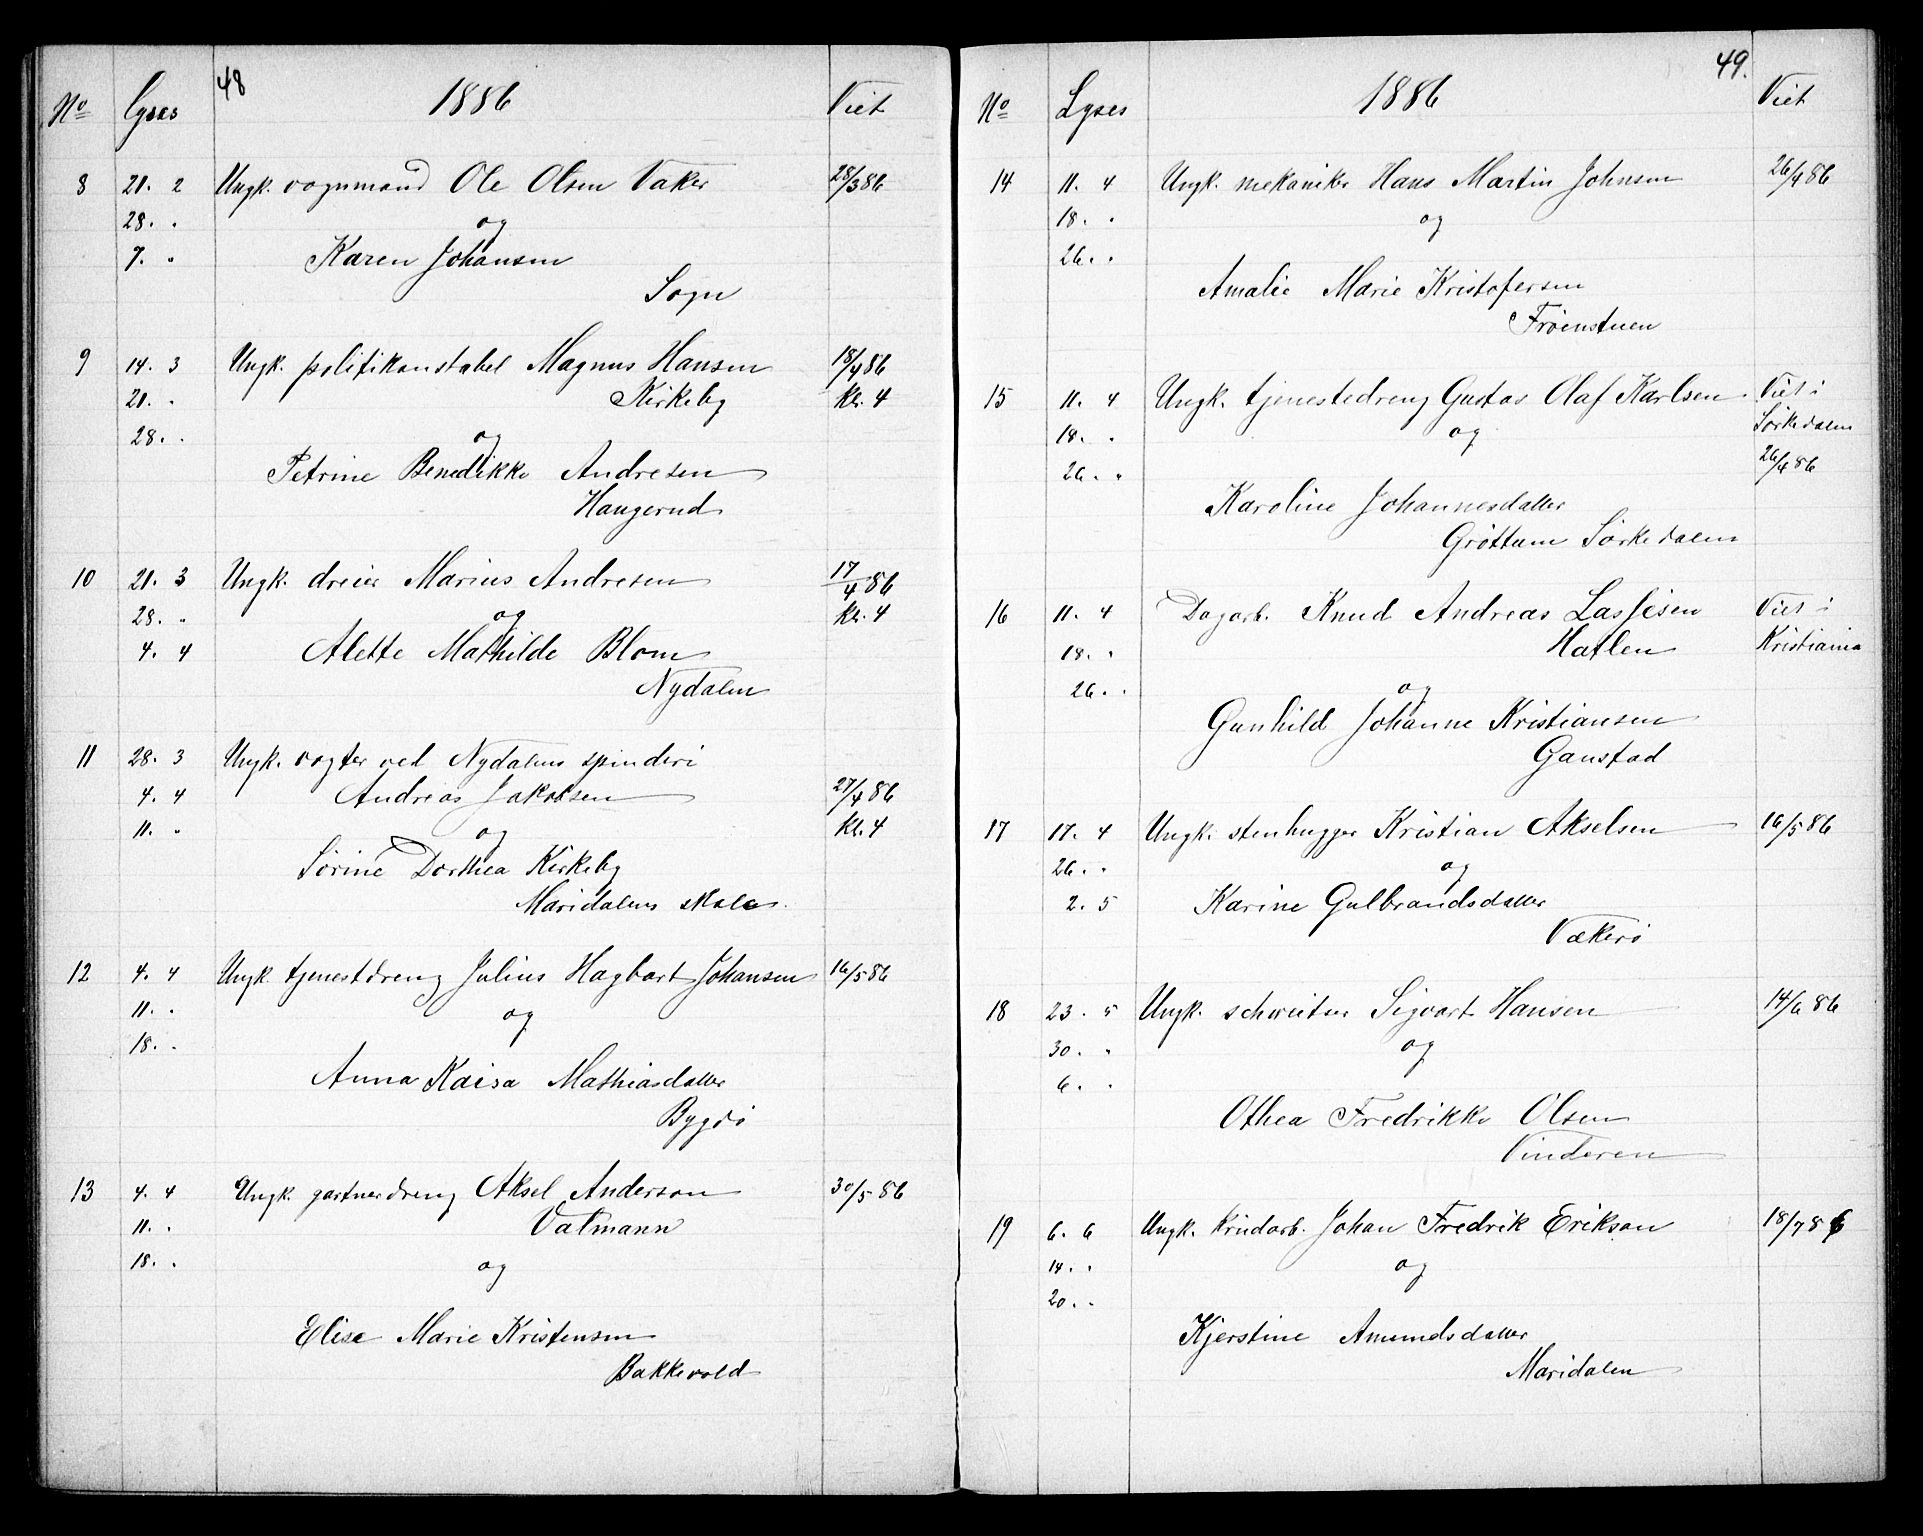 48
1886
No Lyses Viet
8 21. 2 Ungk. vognmand Ole Olsen Vaker 28/3 86
28. " og
7. " Karen Johansen
Sogn
9 14. 3 Ungk. politikonstabel Magnus Hansen 18/4 86
21. " Kirkeby Kl. 4
28. " og
Petrine Benedikke Andresen
Haugerud
10 21. 3 Ungk. dreier Marius Andresen 17/4 86
28. " og Kl. 4
4. 4 Alette Mathilde Blom
Nydalen
11 28. 3 Ungk. vogter ved Nydalens spinderi
4. 4 Andreas Jakobsen 27/4 86
11. " og Kl. 4
Sørine Dorthea Kirkeby
Maridalens skole.
12 4. 4 Ungk. tjenestdreng Julius Hagbart Johansen 16/5 86
11. " og
18. "
Anna Kaisa Mathiasdatter
Bygdø
13 4. 4 Ungk. gartnerdreng Aksel Anderson 30/5 86
11. " Valmann
18. " og
Elise Marie Kristensen
Bakkevold
49.
1886
No Lyses Viet
14 11. 4 Ungk. mekaniker Hans Martin Johnsen 26/4 86
18. " og
26. "
Amalie Marie Kristofersen
Frøenstuen
15 11. 4 Ungk. tjenestedreng Gustav Olaf Karlsen Viet i
18. " og Sørkedalen
26. " 26/4 86
Karoline Johannesdatter
Grøttum Sørkedalen
16 11. 4 Dagarb. Knud Andreas Lassesen Viet i
18. " Hatlen Kristiania
26. " og
Gunhild Johanne Kristiansen
Gaustad
17 17. 4 Ungk. stenhugger Kristian Akselsen 16/5 86
26. " og
2. 5 Karine Gulbrandsdatter
Vækerø
18 23. 5 Ungk. schweitser Sigvart Hansen 14/6 86
30. " og
6. "
Othea Fredrikke Olsen
Vinderen
19 6. 6 Ungk. Johan Fredrik Erikson 18/7 86
14. " og
20. "
Kjerstine Amundsdatter
Maridalen